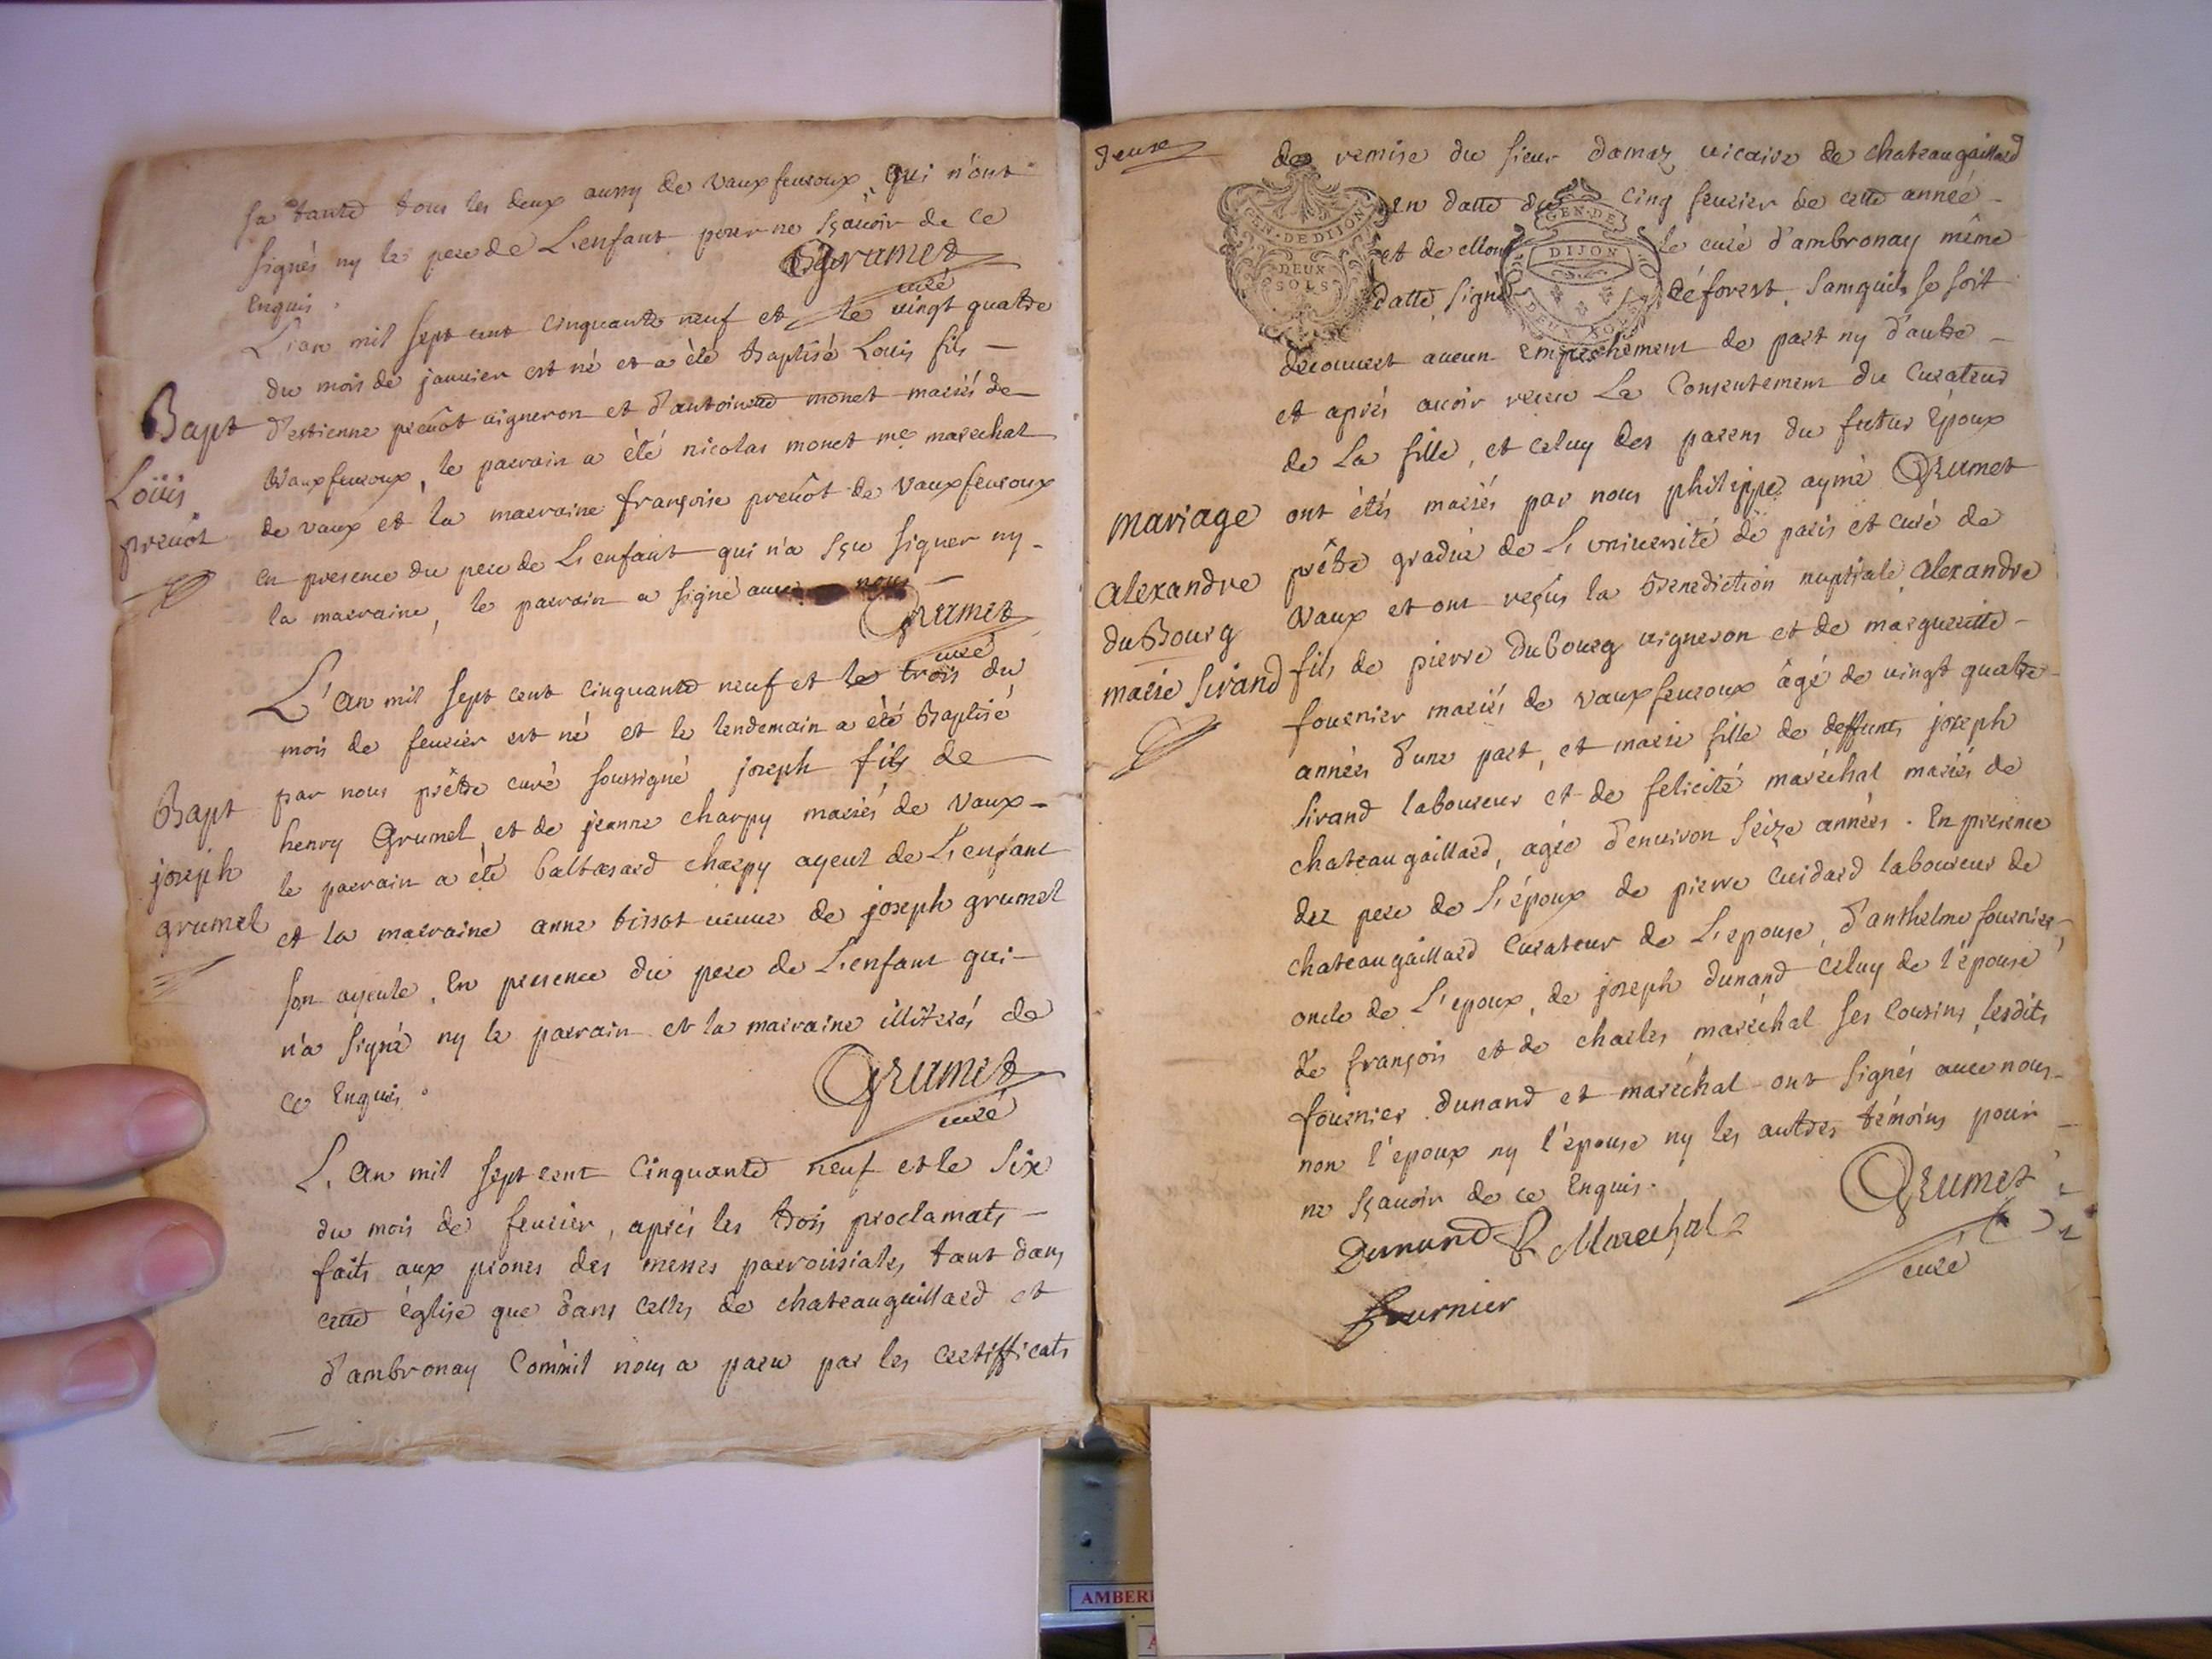 sa tante tous les deux aussy de vauxfeuroux, qui n'ont
signés ny le pere de L'enfant pour ne sçavoir de ce
Enquis.
Grumet
curé
L'an mil sept cent cinquante neuf et le vingt quatre
du mois de janvier est né et a été baptisé Louis fils
Bapt
Loüis
prevôt
d'estienne prevôt vigneron et d'antoinette monet mariés de
vauxfeuroux, le parrain a été nicolas monet me marechal
de vaux et la marraine françoise prevôt de vauxfeuroux
en presence du pere de L'enfant qui n'a sçu signer ny
la marraine, le parrain a signé avec nous
Grumet
curé
L'an mil sept cent cinquante neuf et le trois du
mois de fevrier est né et le lendemain a été baptisé
par nous prêtre curé soussigné joseph fils de
Bapt
joseph
grumel
henry Grumel et de jeanne charpy mariés de vaux
le parrain a été baltasard charpy ayeul de L'enfant
et la marraine anne tissot veuve de joseph grumel
son ayeule, En presence du pere de L'enfant qui
n'a signé ny le parrain et la marraine illiterés de
ce Enquis.
Grumet
curé
L'an mil sept cent cinquante neuf et le six
du mois de fevrier, aprés les trois proclamats
faits aux prones des messes parroissiales, tant dans
cette église que dans celles de chateaugaillard et
d'ambronay Comm'il nous a paru par les certifficats
deuxe
de remise du sieur damaz vicaire de chateaugaillard
en datte du cinq fevrier de cette année
et de le curé d'ambronay même
datte, signé déforest, sans quil se soit
GEN. DE DIJON
DEUX SOLS
GEN. DE
DIJON
DEUX SOLS
decouvert aucun Empeschement de part ny d'autre
et aprés avoir receu Le Consentement du Curateur
de La fille, et celuy des parens du futur Époux
mariage
alexandre
du Bourg
marie sirand
ont étés mariés par nous philippe aymé Grumet
prêtre gradué de L'université de paris et curé de
vaux et ont reçus la Benediction nuptiale, alexandre
fils de pierre Dubourg vigneron et de marguerite
fournier mariés de vauxfeuroux âgé de vingt quatre
années d'une part, et marie fille de deffunts joseph
Sirand laboureur et de felicité maréchal mariés de
chateaugaillard, agée d'environ seize années. En presence
des pere de L'époux de pierre cuidard laboureur de
chateaugaillard Curateur de L'epouse, d'anthelme fournier
oncle de L'epoux, de joseph dunand celuy de l'épouse,
de françois et de charles maréchal ses Cousins, lesdits
fournier Dunand et maréchal ont signés avec nous
non l'epoux ny l'epouse ny les autres témoins pour
ne sçavoir de ce Enquis.
Dunand C Marechal
Grumet
curé
fournier
AMBER
A